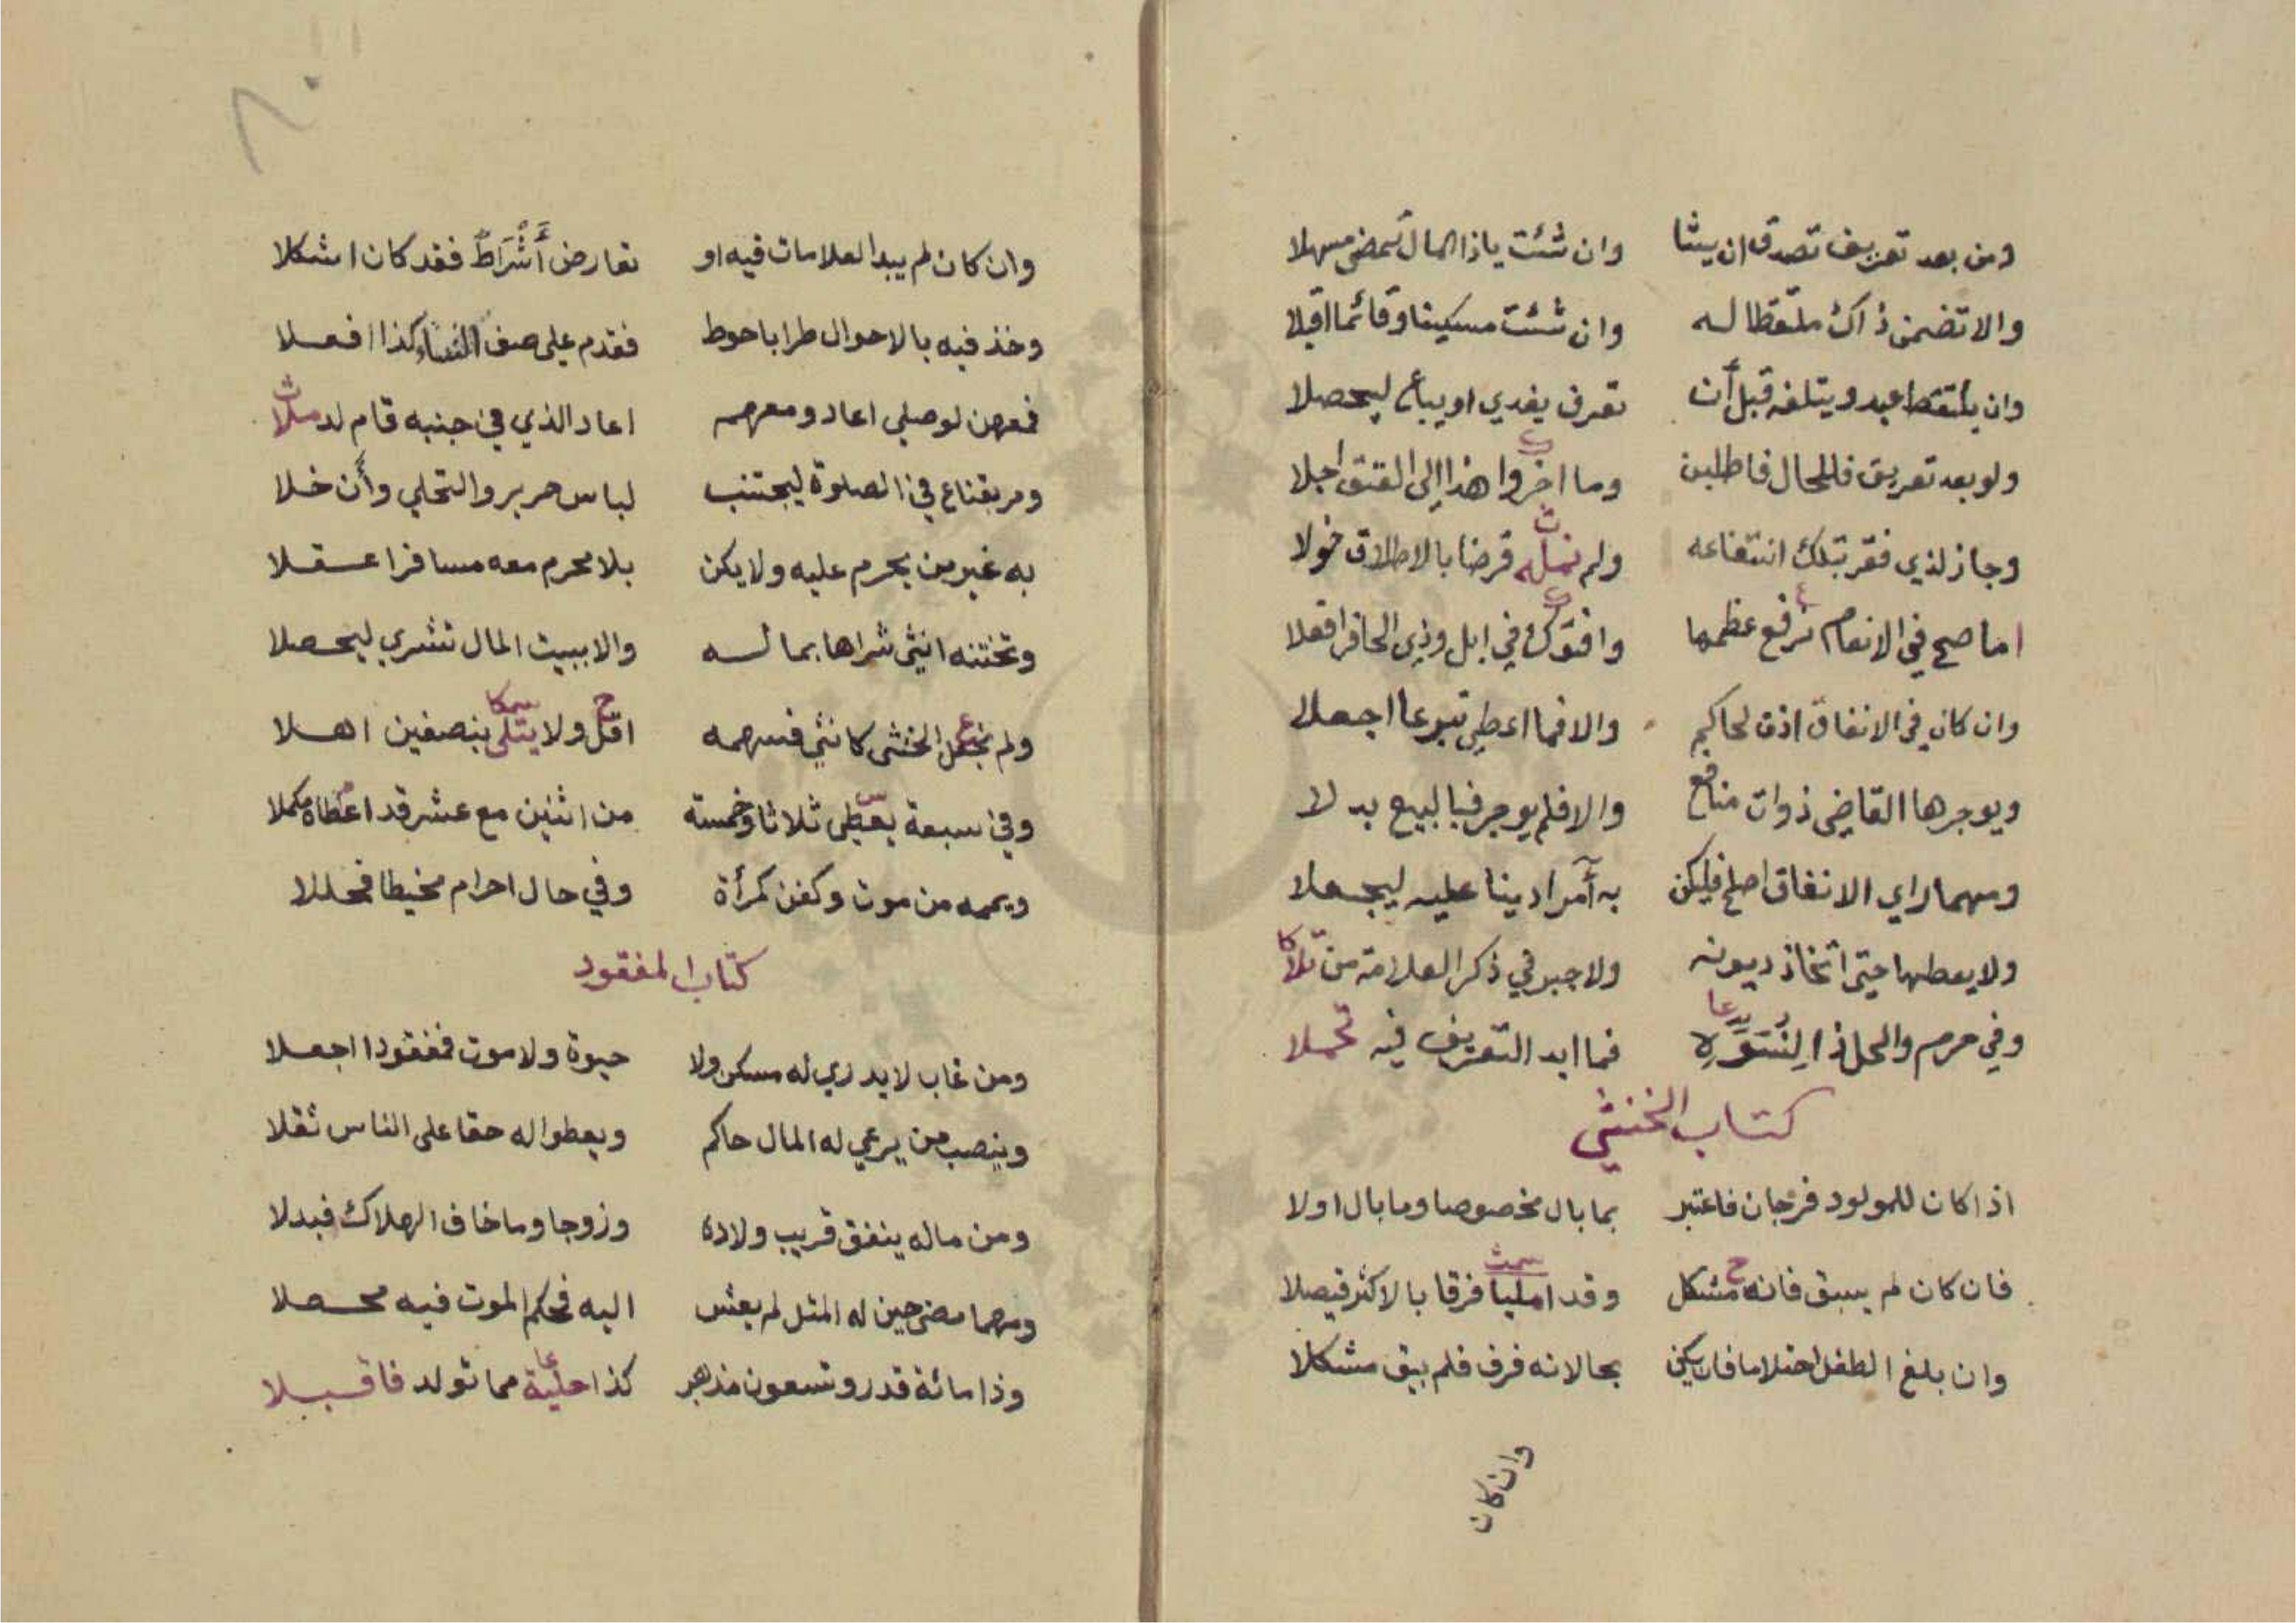 ومن بعد تعريف تصدق ان يشا وان شئت ياذا المال تمضي مسهلا
والا تضمن ذاك ملتقطا له وان شئت مسكينا وقائما اقبلا
وان يلتقط عبد ويتلفه قبل أن تعرف يفدي او يباع ليحصلا
ولو بعد تعريف فللحال فاطلبن وما اخروا هذا الى العتق اجلا
وجاز لذي فقر بتلك انتفاعه ولم نمله قرضا بالاطلاق خولا
اما صح في الانعام ترفع عظمها وافتوك في ابل وذي الحافر افعلا
وان كان في الانفاق اذن لحاكم والا فما اعطي تبرعا اجعلا
ويوجرها القاضي ذوات منافع والا فلم يوجر فبالبيع بدلا
ومهما راي الانفاق اصلح فليكن به آمرا دينا عليه ليجعلا
ولا يعطها حتى اتخاذ ديونه ولا جبر في ذكر العلامة من تلا
وفي حرم والحل ذا فما ابد التعريف فيه تحملا
كتاب الخنثي
اذا كان للمولود فرجان فاعتبر بما بال مخصوصا وما بال اولا
فان كان لم يسبق فانه مشكل وقد امليا فرقا بالاكثر فيصلا
وان بلغ الطفل احتلاما فان يكن بحالاته فرق فلم يبق مشكلا
وان كان
٨٠
وان كان لم يبد العلامات فيه او تعارض أَشْرَاطٌ فقد كان اشكلا
وخذ فيه بالاحوال طرا باحوط فقدم على صف النساء كذا افعلا
فمعهن لو صلى اعاد ومعهم اعاد الذي في جنبه قام لد ملا
ومر بقناع في الصلوة ليجتنب لباس حرير والتحلي وأن خلا
به غير من يحرم عليه ولا يكن بلا محرم معه مسافرا عقلا
وتختنه انثى شراها بماله والا ببيت المال تشري ليحصلا
ولم نجعل الخنثى كانثي فسهمه اقل ولا يتلى بنصفين اهلا
وفي سبعة يعطى ثلاثا وخمسة من اثنين مع عشر قد اعطاه مكملا
ويممه من موت وكفن كمرأة وفي حال احرام مخيطا فحللا
كتاب المفقود
ومن غاب لا يدري له مسكن ولا حيوة ولا موت فمفقودا اجعلا
وينصب من يرعي له المال حاكم ويعطوا له حقا على الناس ثقلا
ومن ماله ينفق قريب ولاده وزوجا وما خاف الهلاك فبدلا
ومهما مضى حين له المثل لم يعش اليه فحكم الموت فيه محصلا
وذا مائة قدر وتسعون مذهر كذا حلية مما تولد فاقبلا